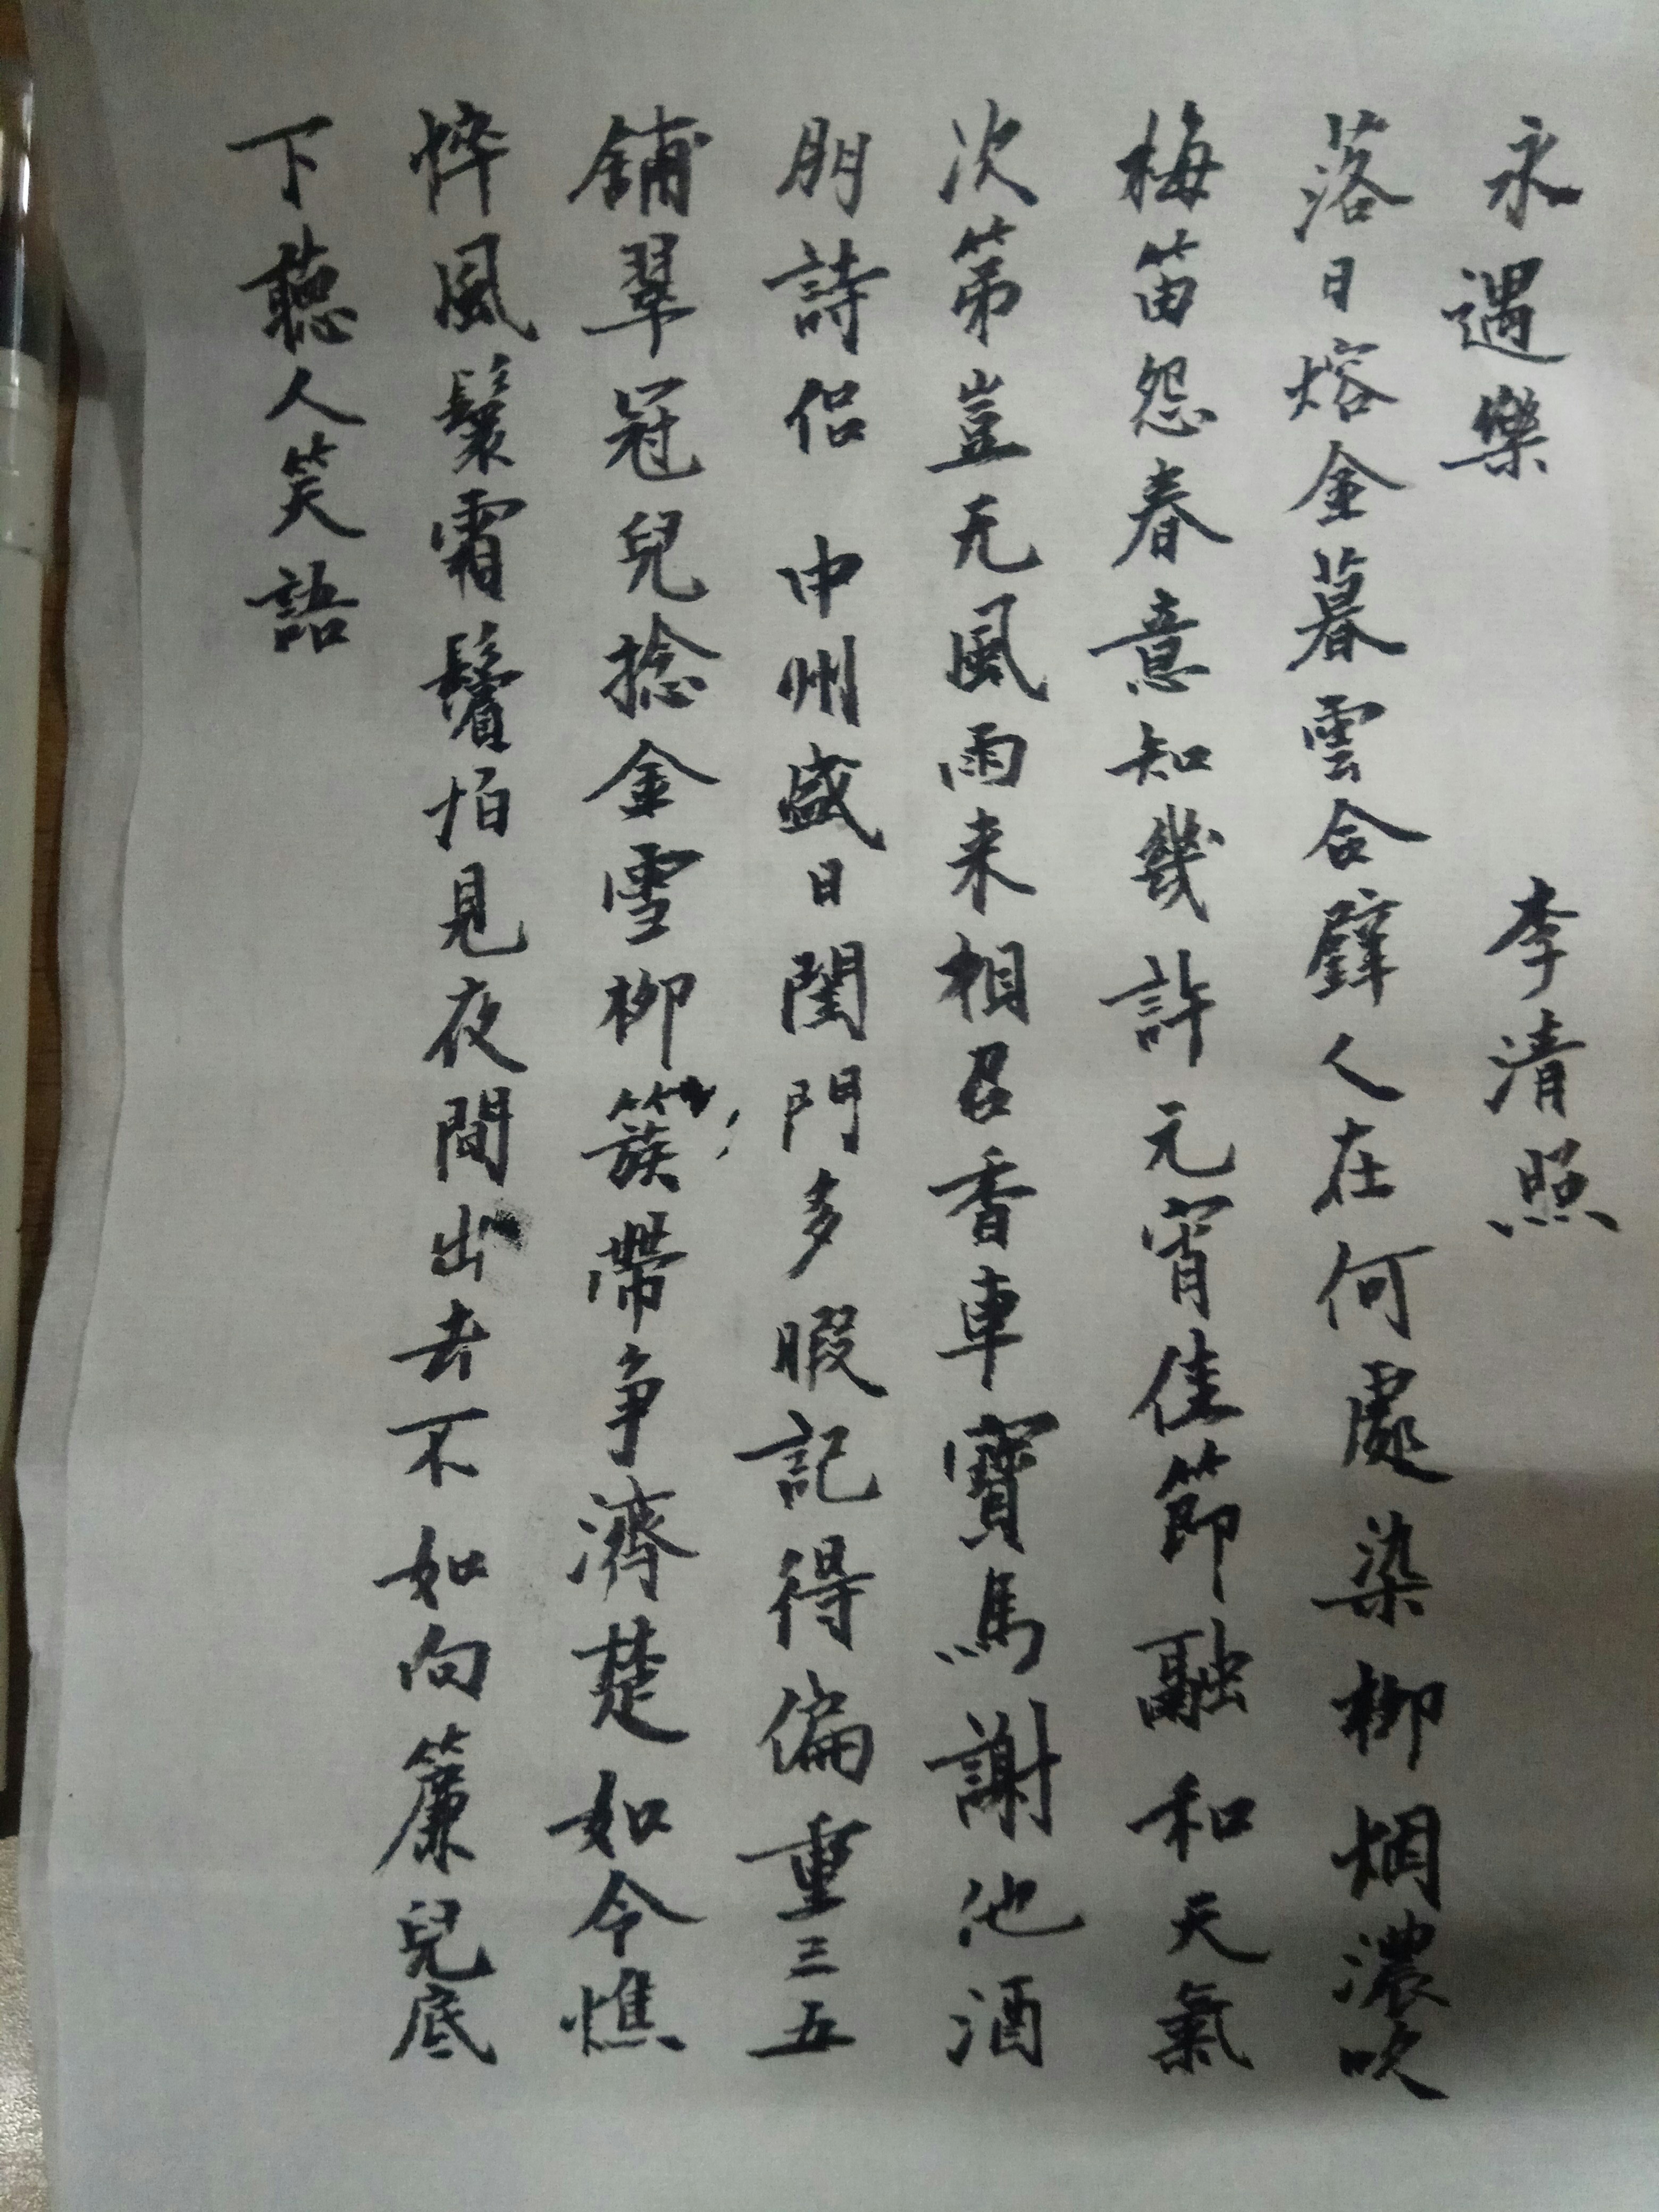 永遇樂 李清照
落日熔金暮雲合璧人在何處染柳烟濃吹
梅笛怨春意知幾許元宵佳節融和天氣
次第豈无風雨来相召香車寶馬謝他酒
朋詩侣 中州盛日閨門多暇記得偏重三五
鋪翠冠兒捻金雪柳簇帶争濟楚如今憔
悴風鬟霜鬢怕見夜間出去不如向簾兒底
下聽人笑語